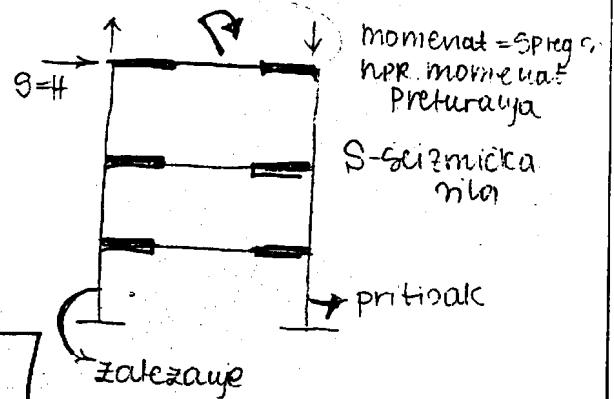 momenat = spreg
npr. momenat
preturanja
S=H
S-seizmička
sila
pritisak
zatezanje